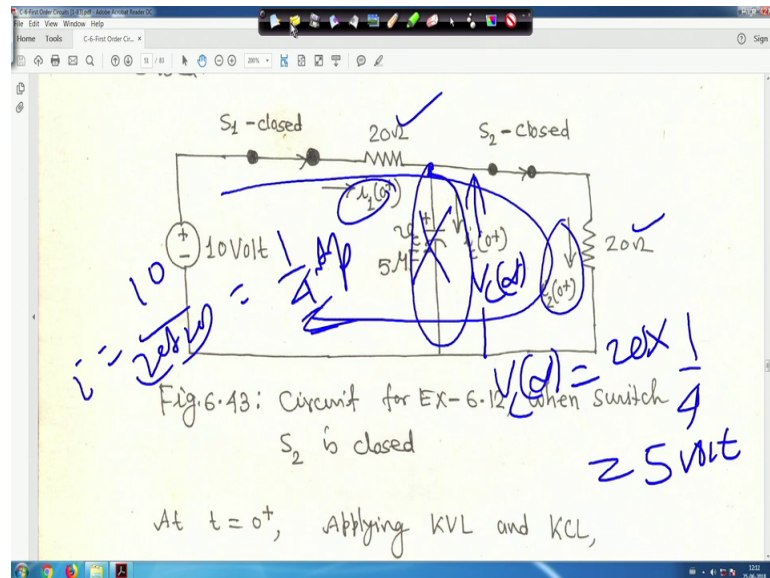 C-6-First Order Circuits [1-83].pdf - Adobe Acrobat Reader DC
File Edit View Window Help
Home Tools C-6-First Order Cir... × Sign
51 / 83 200%
S1-closed 20Ω S2-closed
i1(0+)
+
10Volt
5μ
ic(0+)
i2(0+)
20Ω
Vc(α)
i = 10 / 20+20 = 1/4 Amp
Vc(α) = 20 × 1/4
= 5 volt
Fig. 6.43: Circuit for EX-6.12, when switch
S2 is closed
At t=0+, Applying KVL and KCL,
12:12